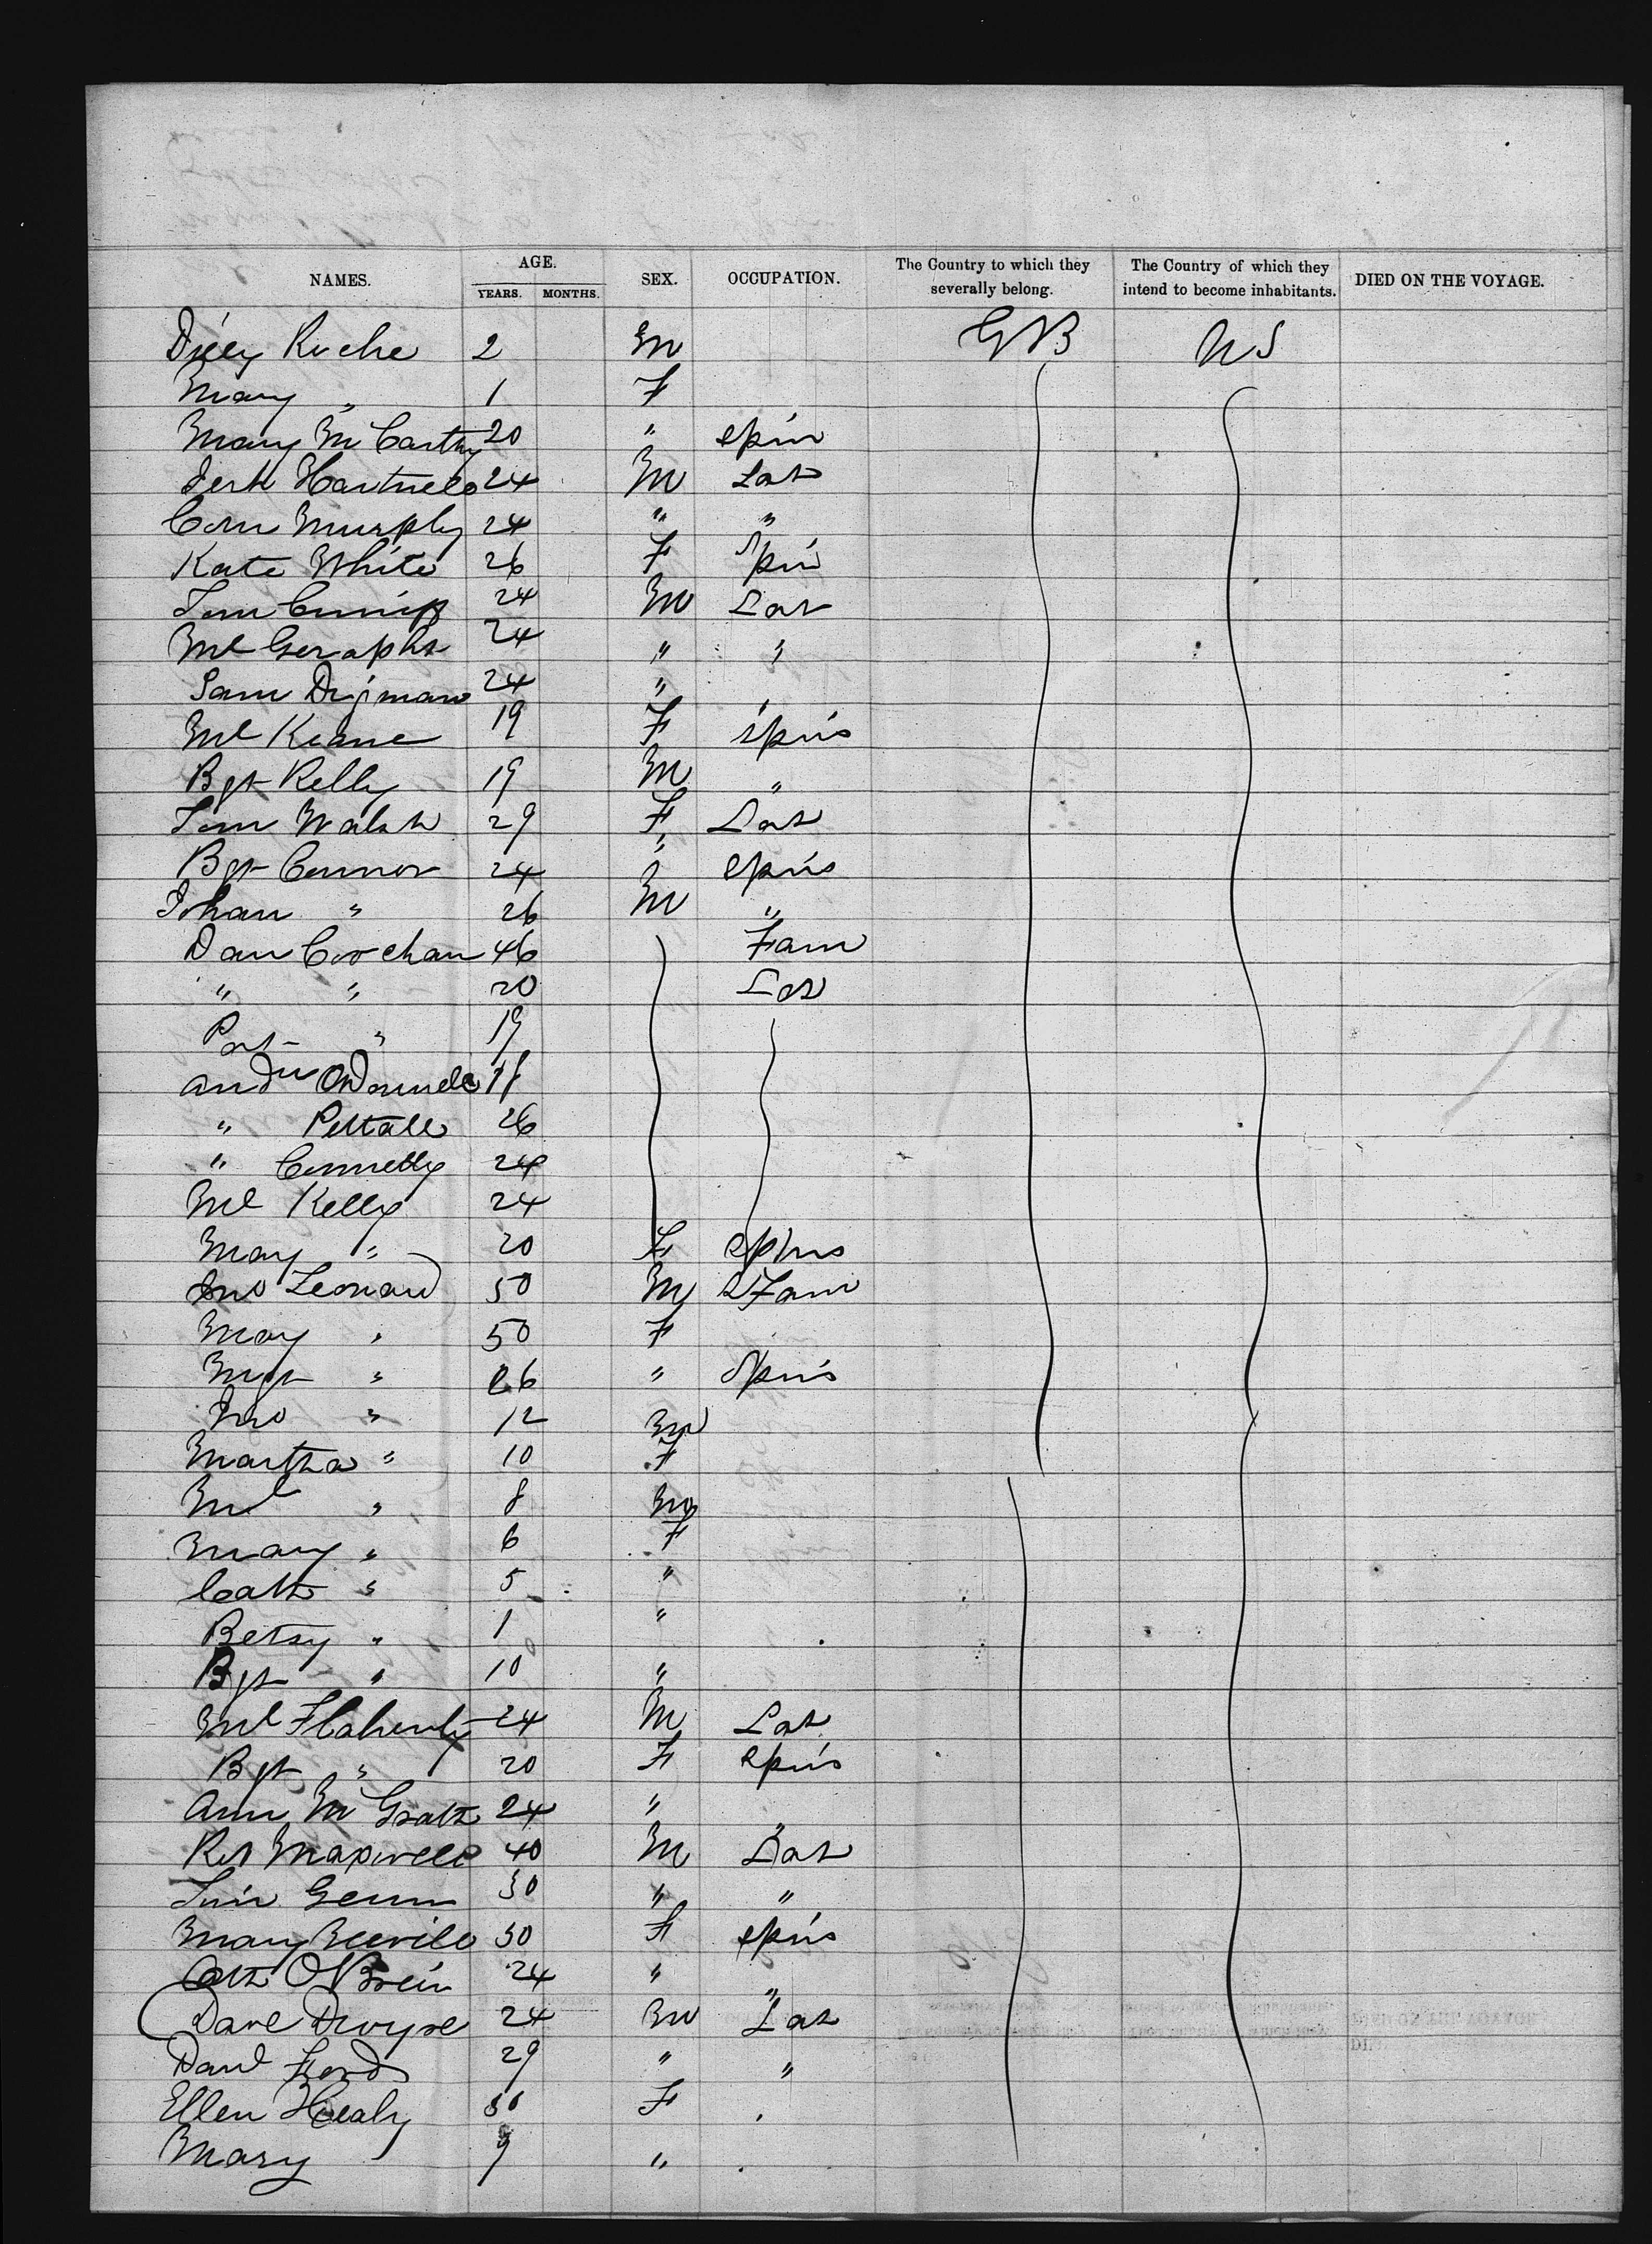 NAMES. AGE. YEARS. MONTHS. SEX. OCCUPATION. The Country to which they severally belong. The Country of which they intend to become inhabitants. DIED ON THE VOYAGE.
Roche 2 M GB US
Mary " 1 F
Mary McCarthy 20 " spin
Hartnell 24 M Lab
Corn Murphy 24 " "
Kate White 26 F Spin
24 M Lab
Ml 24 " "
24 "
Ml Keane 19 F spins
Bgt Kelly 19 M "
Tom Walsh 29 F Lab
Bgt Connor 24 " spins
Johan " 26 M "
Dan 46 Farm
" " 20 Lab
Pat " 19
Andw O'Donnell 18
" 26
" Connelly 24
Ml Kelly 24
Mary " 20 F spins
Jno Leonard 50 M Farm
Mary " 50 F
Mgt " 26 " Spins
Jno " 12 M
Martha " 10 F
Ml " 8 M
Mary " 6 F
Cath " 5 "
Betsy " 1 "
Bgt " 10 "
Ml Flaherty 24 M Lab
Bgt " 20 F spins
Ann McGrath 24 " "
Maxwell 40 M Lab
30 " "
Mary 30 F spins
Cath O'Brien 24 " "
Dave Dwyse 24 M Lab
Danl Ford 29 " "
Ellen Healy 30 F
Mary 9 "